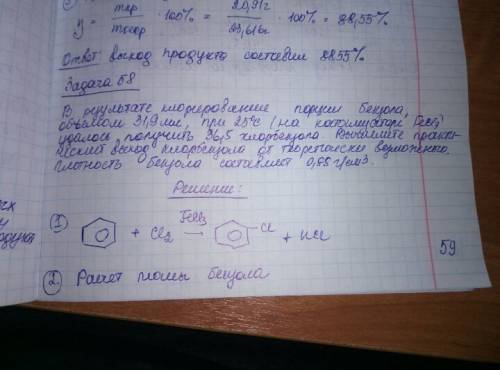 y = mпр / mтеор · 100% = 20,91г / 23,616г · 100% = 88,55%
Ответ: выход продукта составил 88.55%
Задача 58
В результате хлорирование порции бензола,
объёмом 31,9 мл, при 25°C (на катализаторе FeCl3)
удалось получить 36,5 хлорбензола. Вычислите практи-
ческий выход хлорбензола от теоретически возможно.
Плотность бензола составляет 0,88 г/см3.
Решение:
1) + Cl2 FeCl3 → Cl + HCl
59
2. Расчет массы бензола